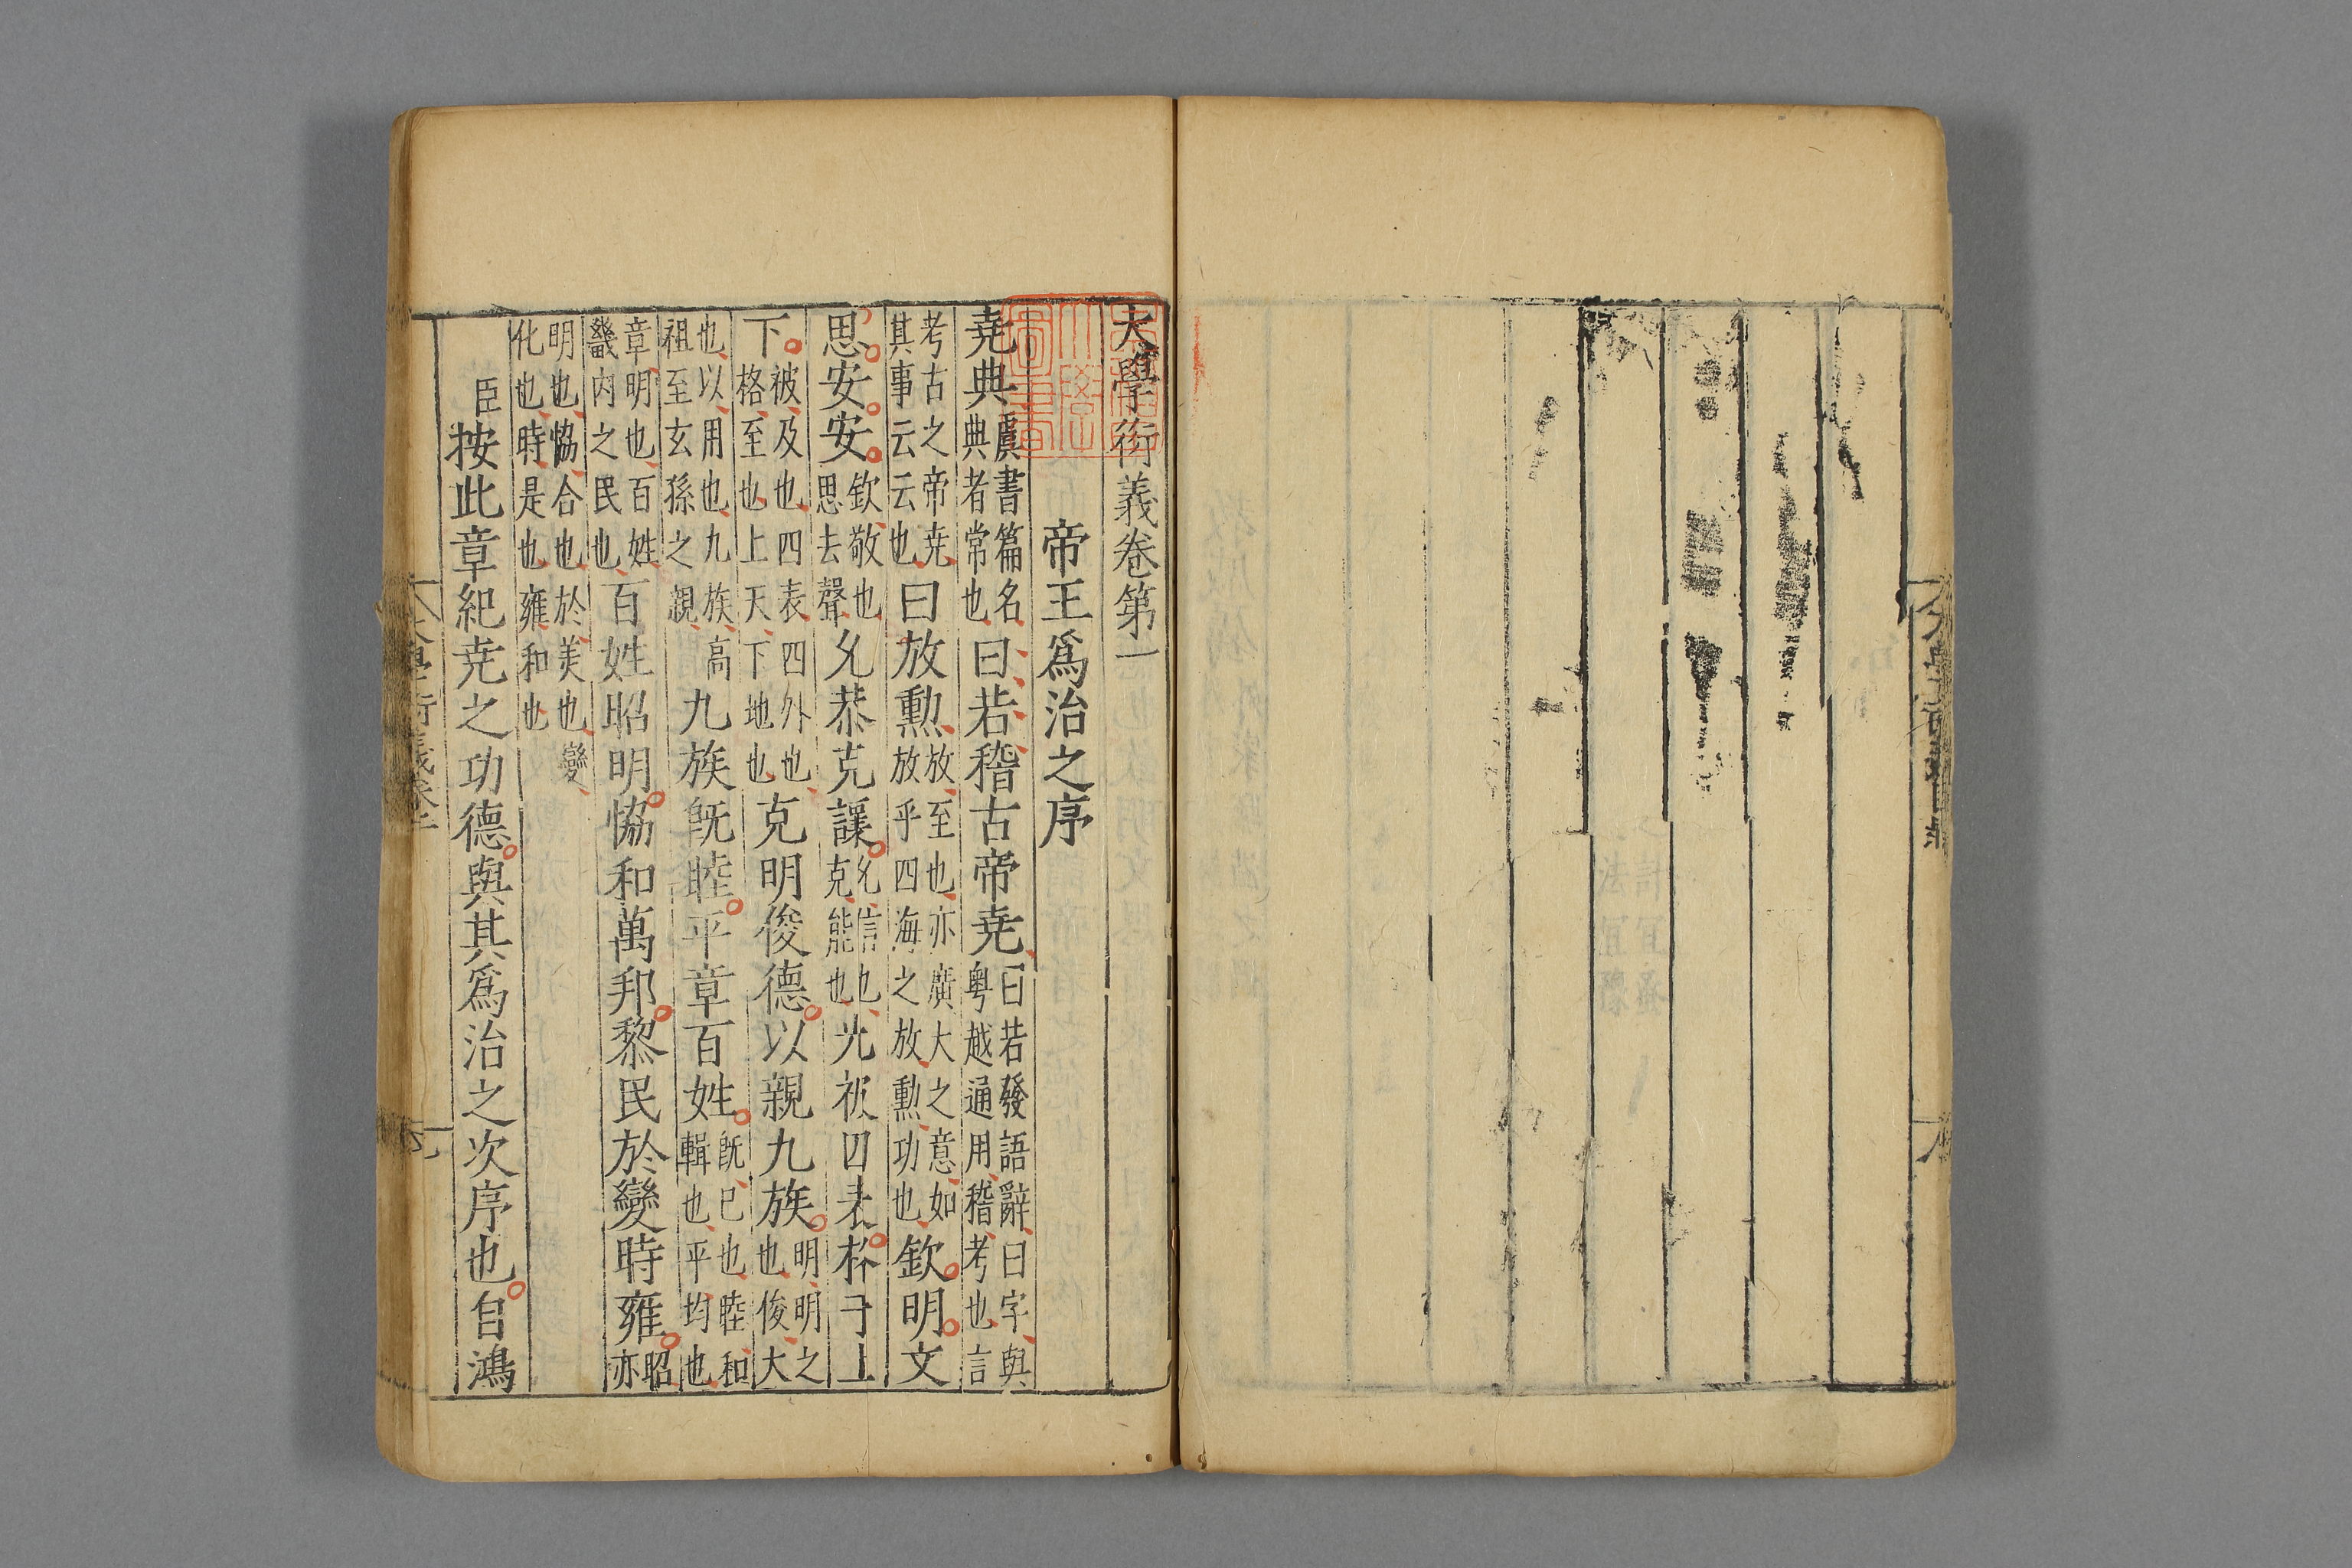 大學衍義卷第一
帝王爲治之序
堯典虞書篇名典者常也曰若稽古帝堯曰若發語辭曰字與粤越通用稽考也言
考古之帝堯其事云云也曰放勲放至也亦廣大之意如放乎四海之放勲功也欽明文
思安安欽敬也思去聲允恭克讓允信也克能也光被四表格于上
下被及也四表四外也格至也上天下地也克明俊德以親九族明明之也俊大
也以用也九族高祖至玄孫之親九族旣睦平章百姓旣已也睦和輯也平均也
章明也百姓畿内之民也百姓昭明恊和萬邦黎民於變時雍昭亦
明也恊合也於美也變化也時是也雍和也
臣按此章紀堯之功德與其爲治之次序也自鴻